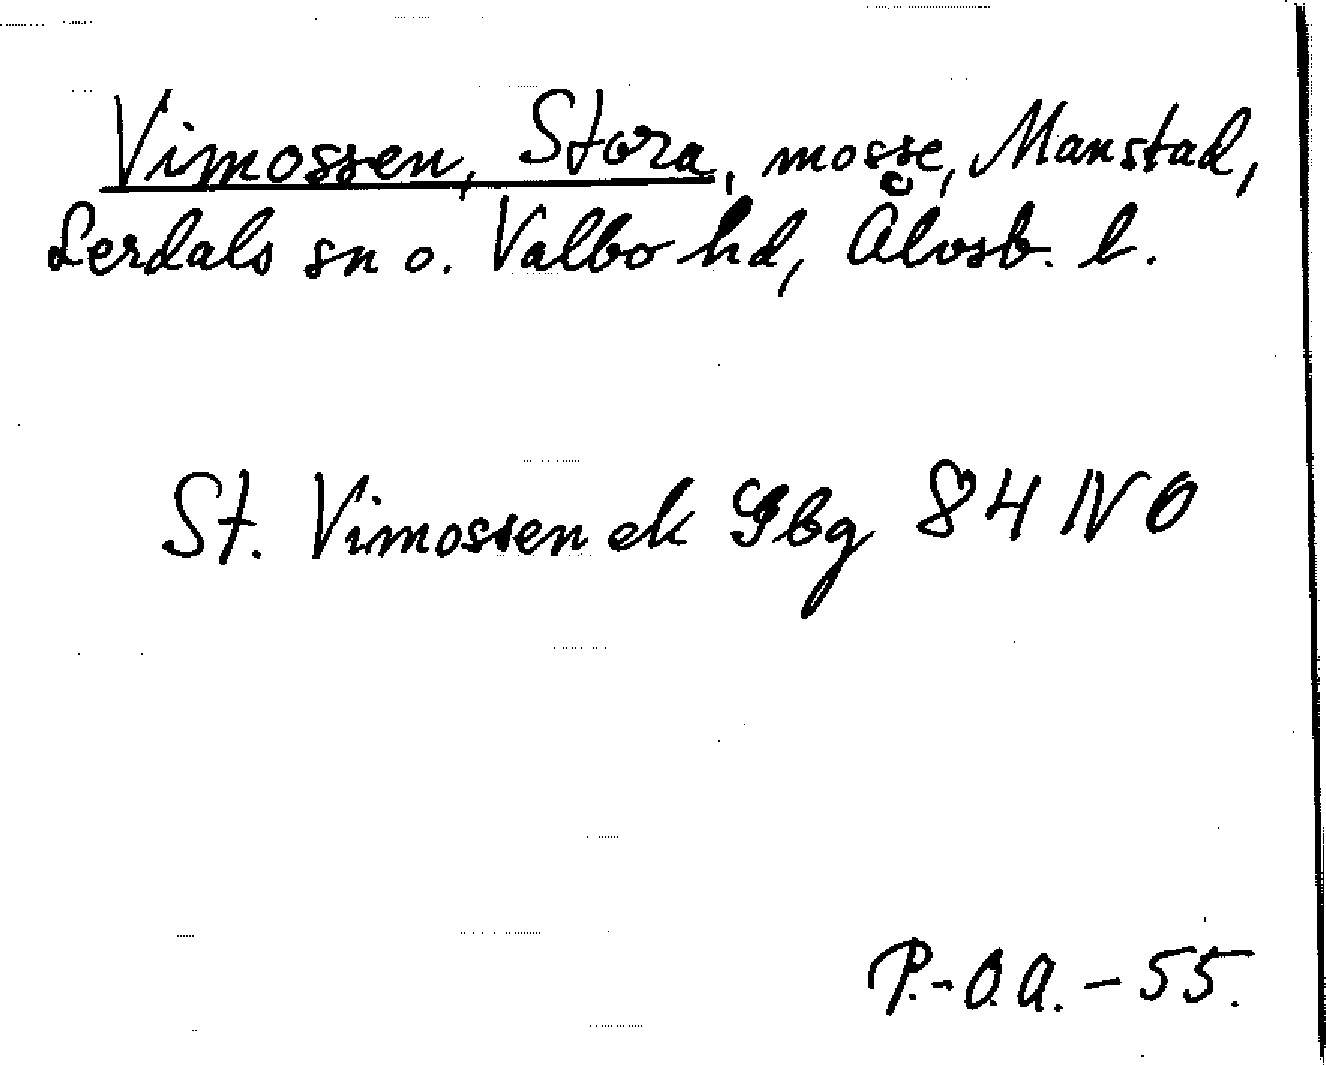 Vimossen, Stora, mosse, Manstad,
Lerdals sn o. Valbo hd, Älvsb. l.
St. Vimossen ek Gbg 84 NO
P.-O.A. - 55.